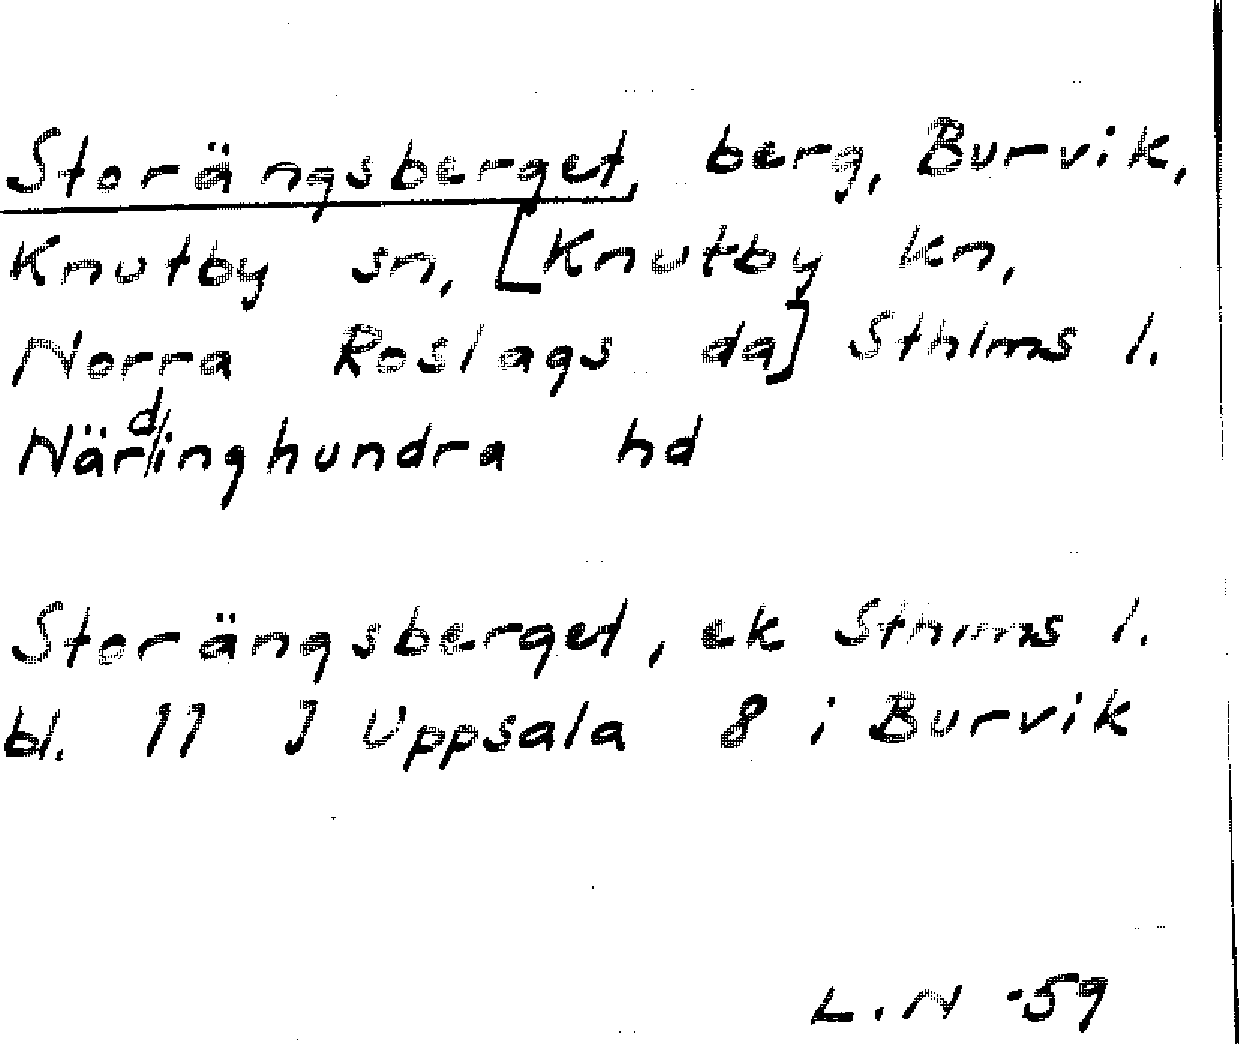 Storängsberget, berg, Burvik,
Knutby sn, [Knutby kn,
Norra Roslags da] Sthlms l.
Närdinghundra hd
Storängsberget, ek Sthlms l.
bl. 11 J Uppsala 8 i Burvik
L.N -59